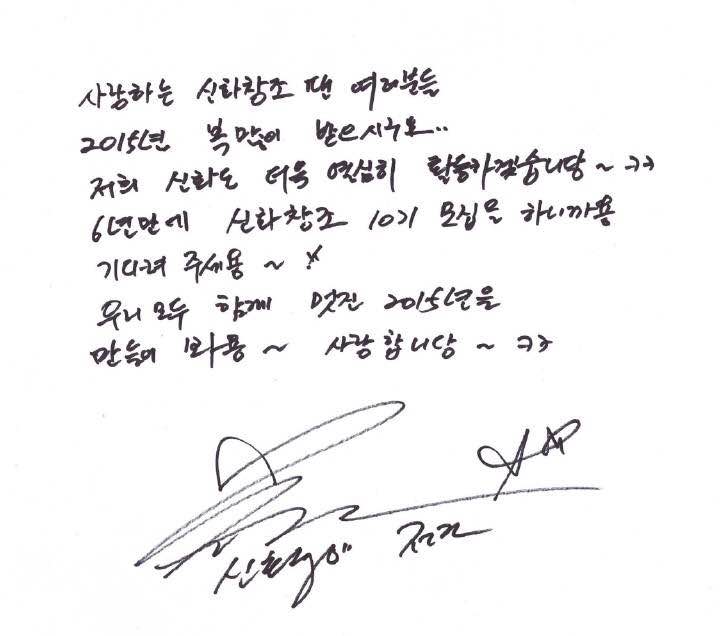 사랑하는 신화창조 팬 여러분들
2015년 복 많이 받으시구요..
저희 신화도 더욱 열심히 활동하겠습니당~ ㅋㅋ
6년만에 신화창조 10기 모집을 하니까용
기다려 주세용~
우리 모두 함께 멋진 2015년을
만들어 봐용~ 사랑합니당~ ㅋㅋ
전진